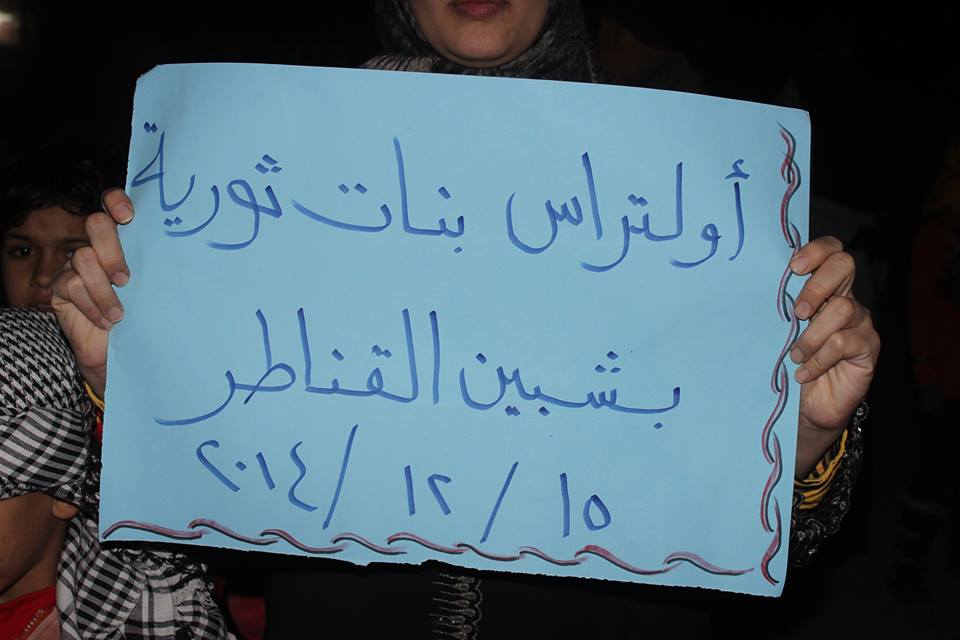 أولتراس بنات ثورية
بشبين القناطر
١٥ / ١٢ / ٢٠١٤